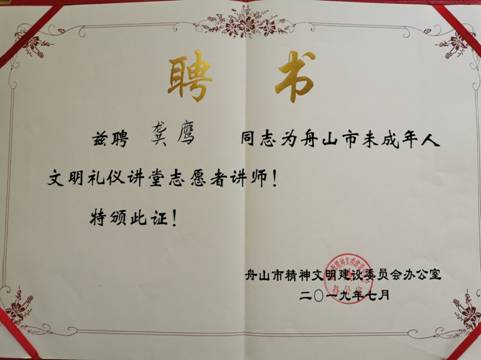 聘书
兹聘 龚鹰 同志为舟山市未成年人
文明礼仪讲堂志愿者讲师！
特颁此证！
舟山市精神文明建设委员会办公室
二〇一九年七月